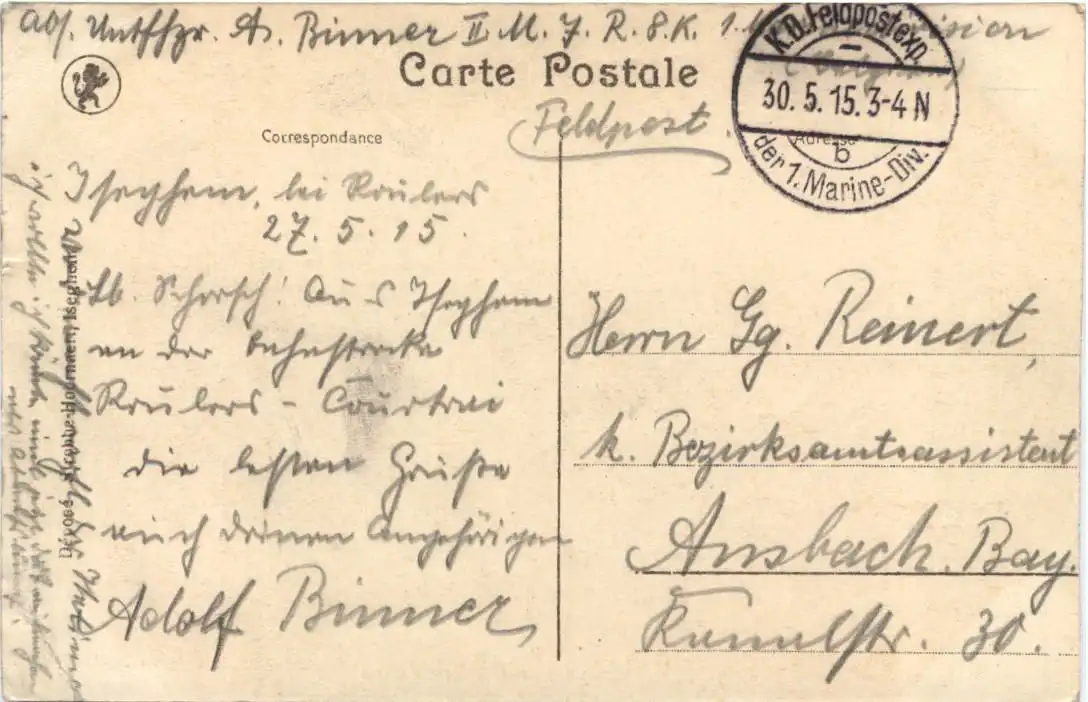 Abs. Untffzr. A. Binner II. M. J. R. 8. K. 1. M. Division
Carte Postale
Feldpost.
K.D. Feldpostexp.
30. 5. 15. 3-4 N
b
der 1. Marine-Div.
Correspondance
Adresse
Iseghem, bei Roulers
27. 5. 15.
Lb. Schorsch! Aus Iseghem
an der Bahnstrecke
Roulers - Courtrai
die besten Grüße
auch deinen Angehörigen
Adolf Binner
Herrn Gg. Reinert,
k. Bezirksamtsassistent
Ansbach. Bay.
Kanalstr. 30.